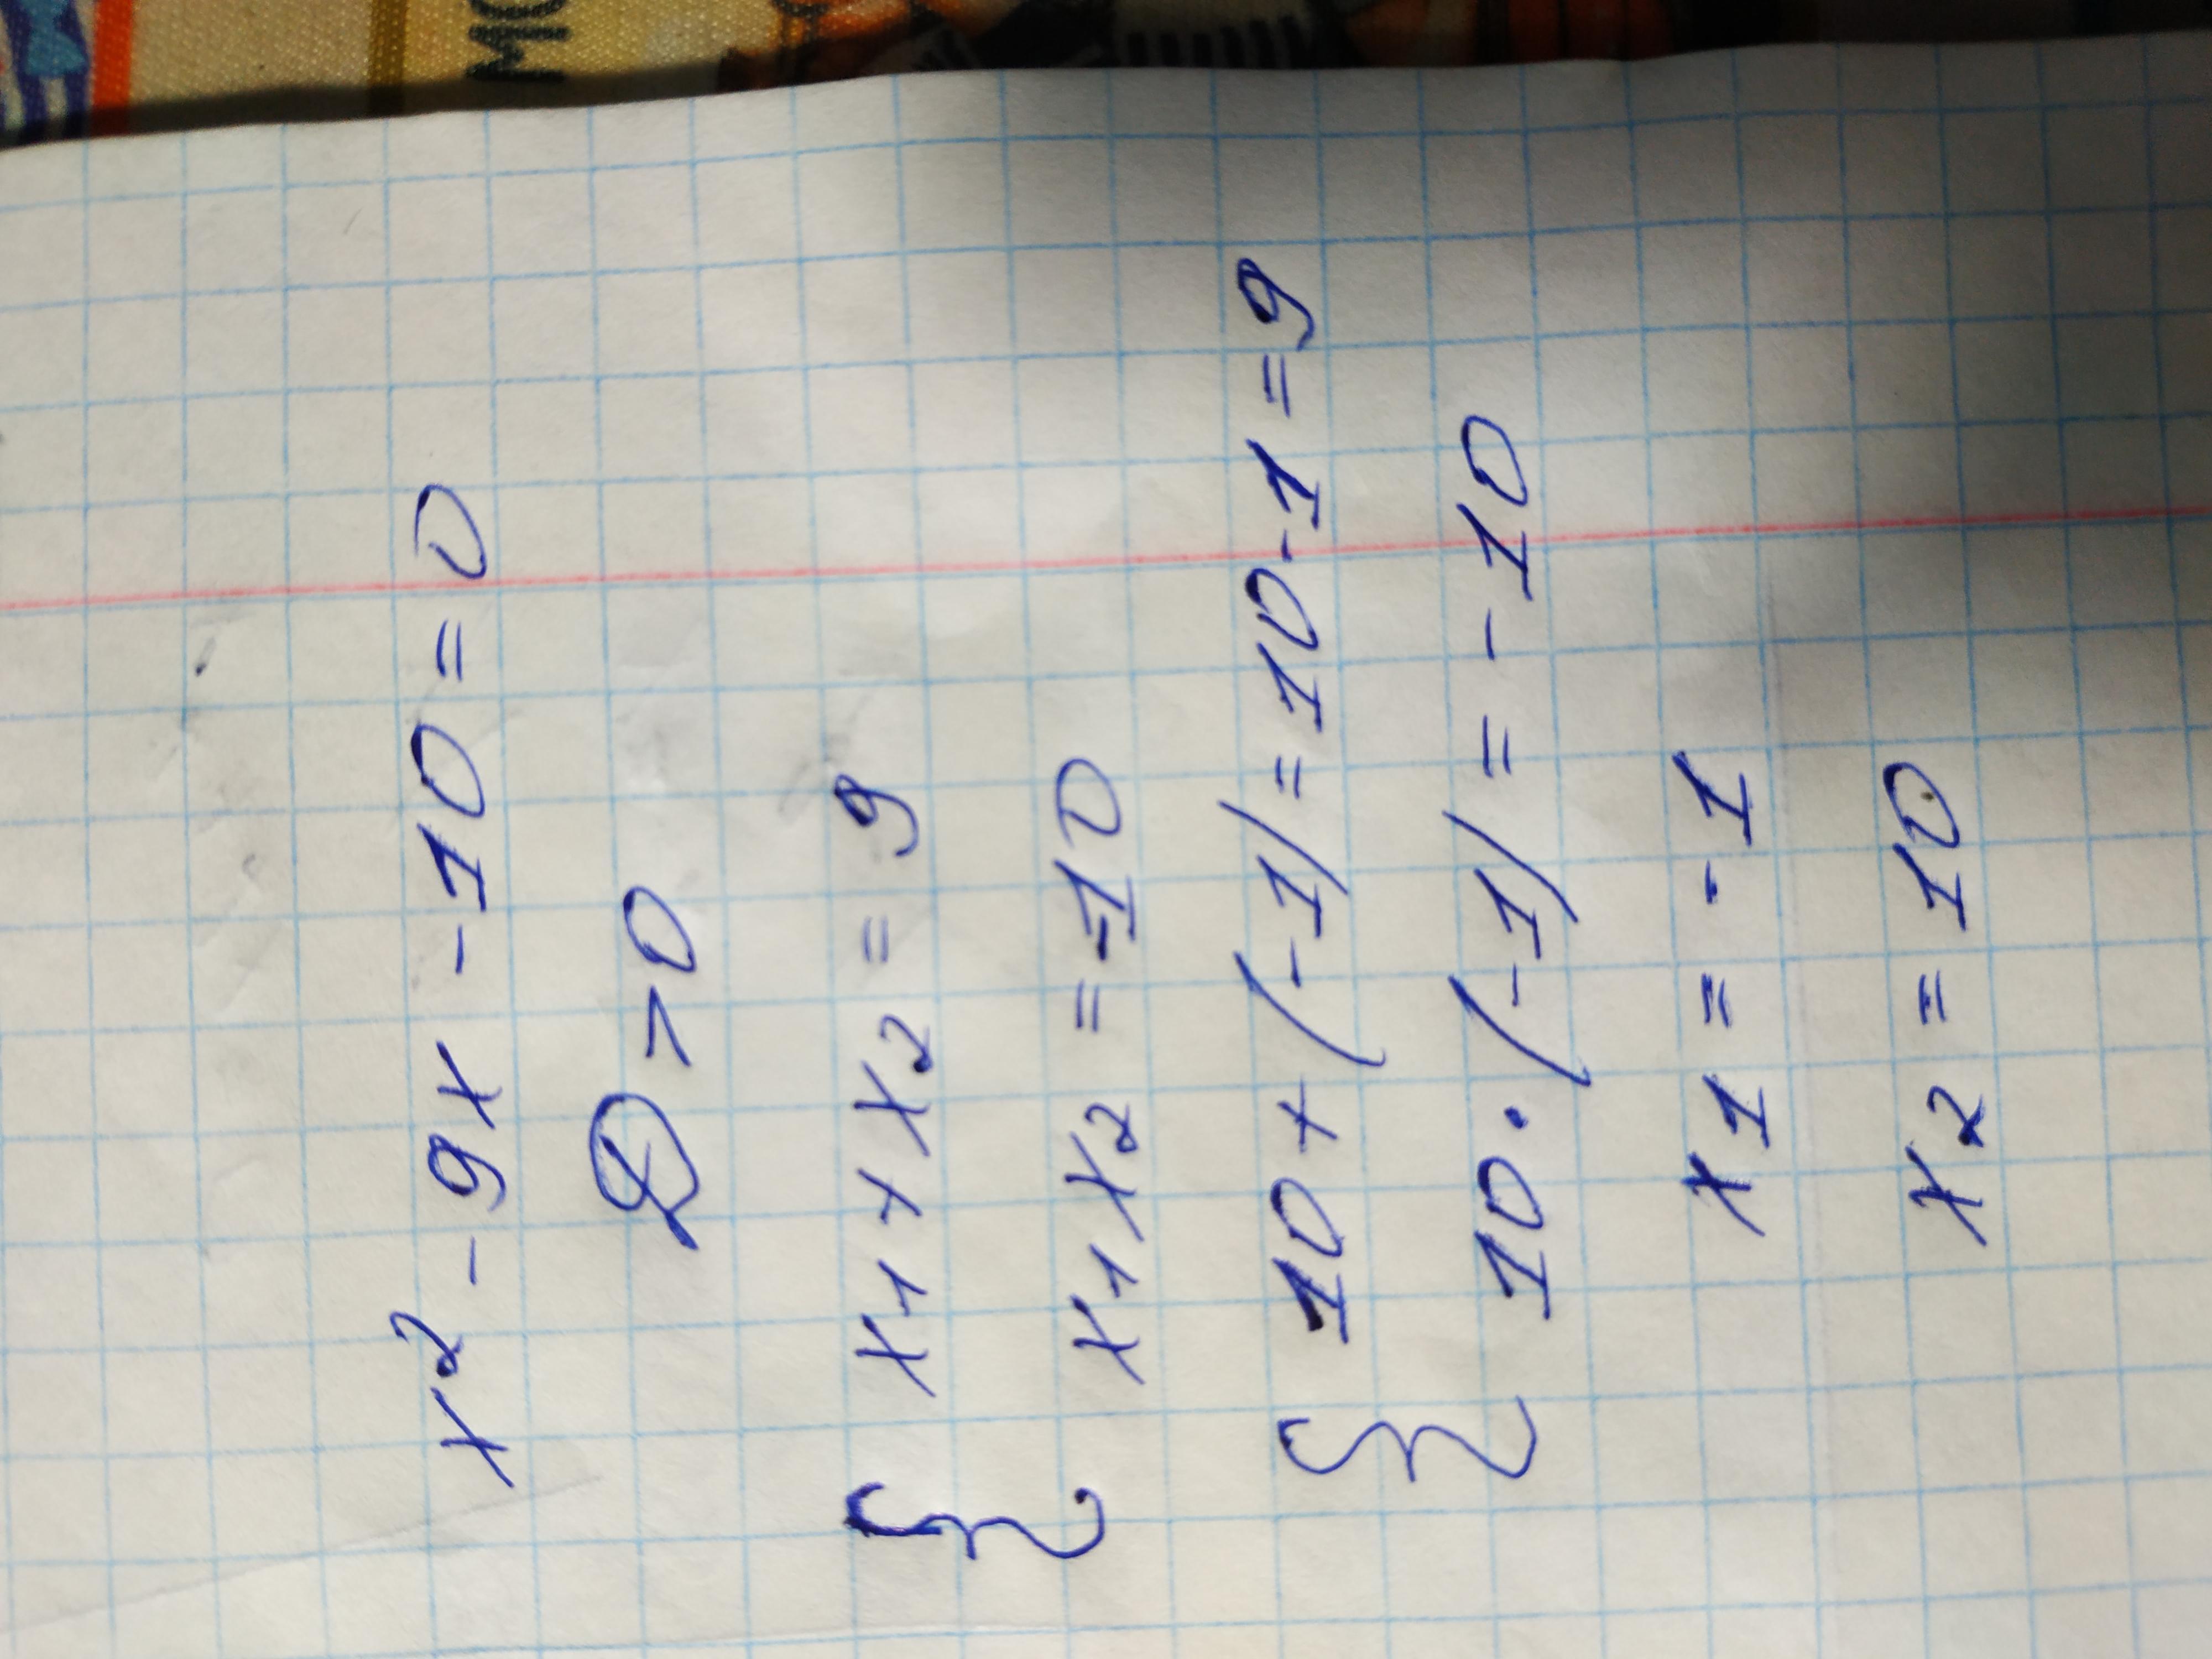 x² - 9x - 10 = 0
D > 0
{ x₁ + x₂ = 9
x₁x₂ = -10
{ 10 + (-1) = 10 - 1 = 9
10 · (-1) = - 10
x₁ = - 1
x₂ = 10